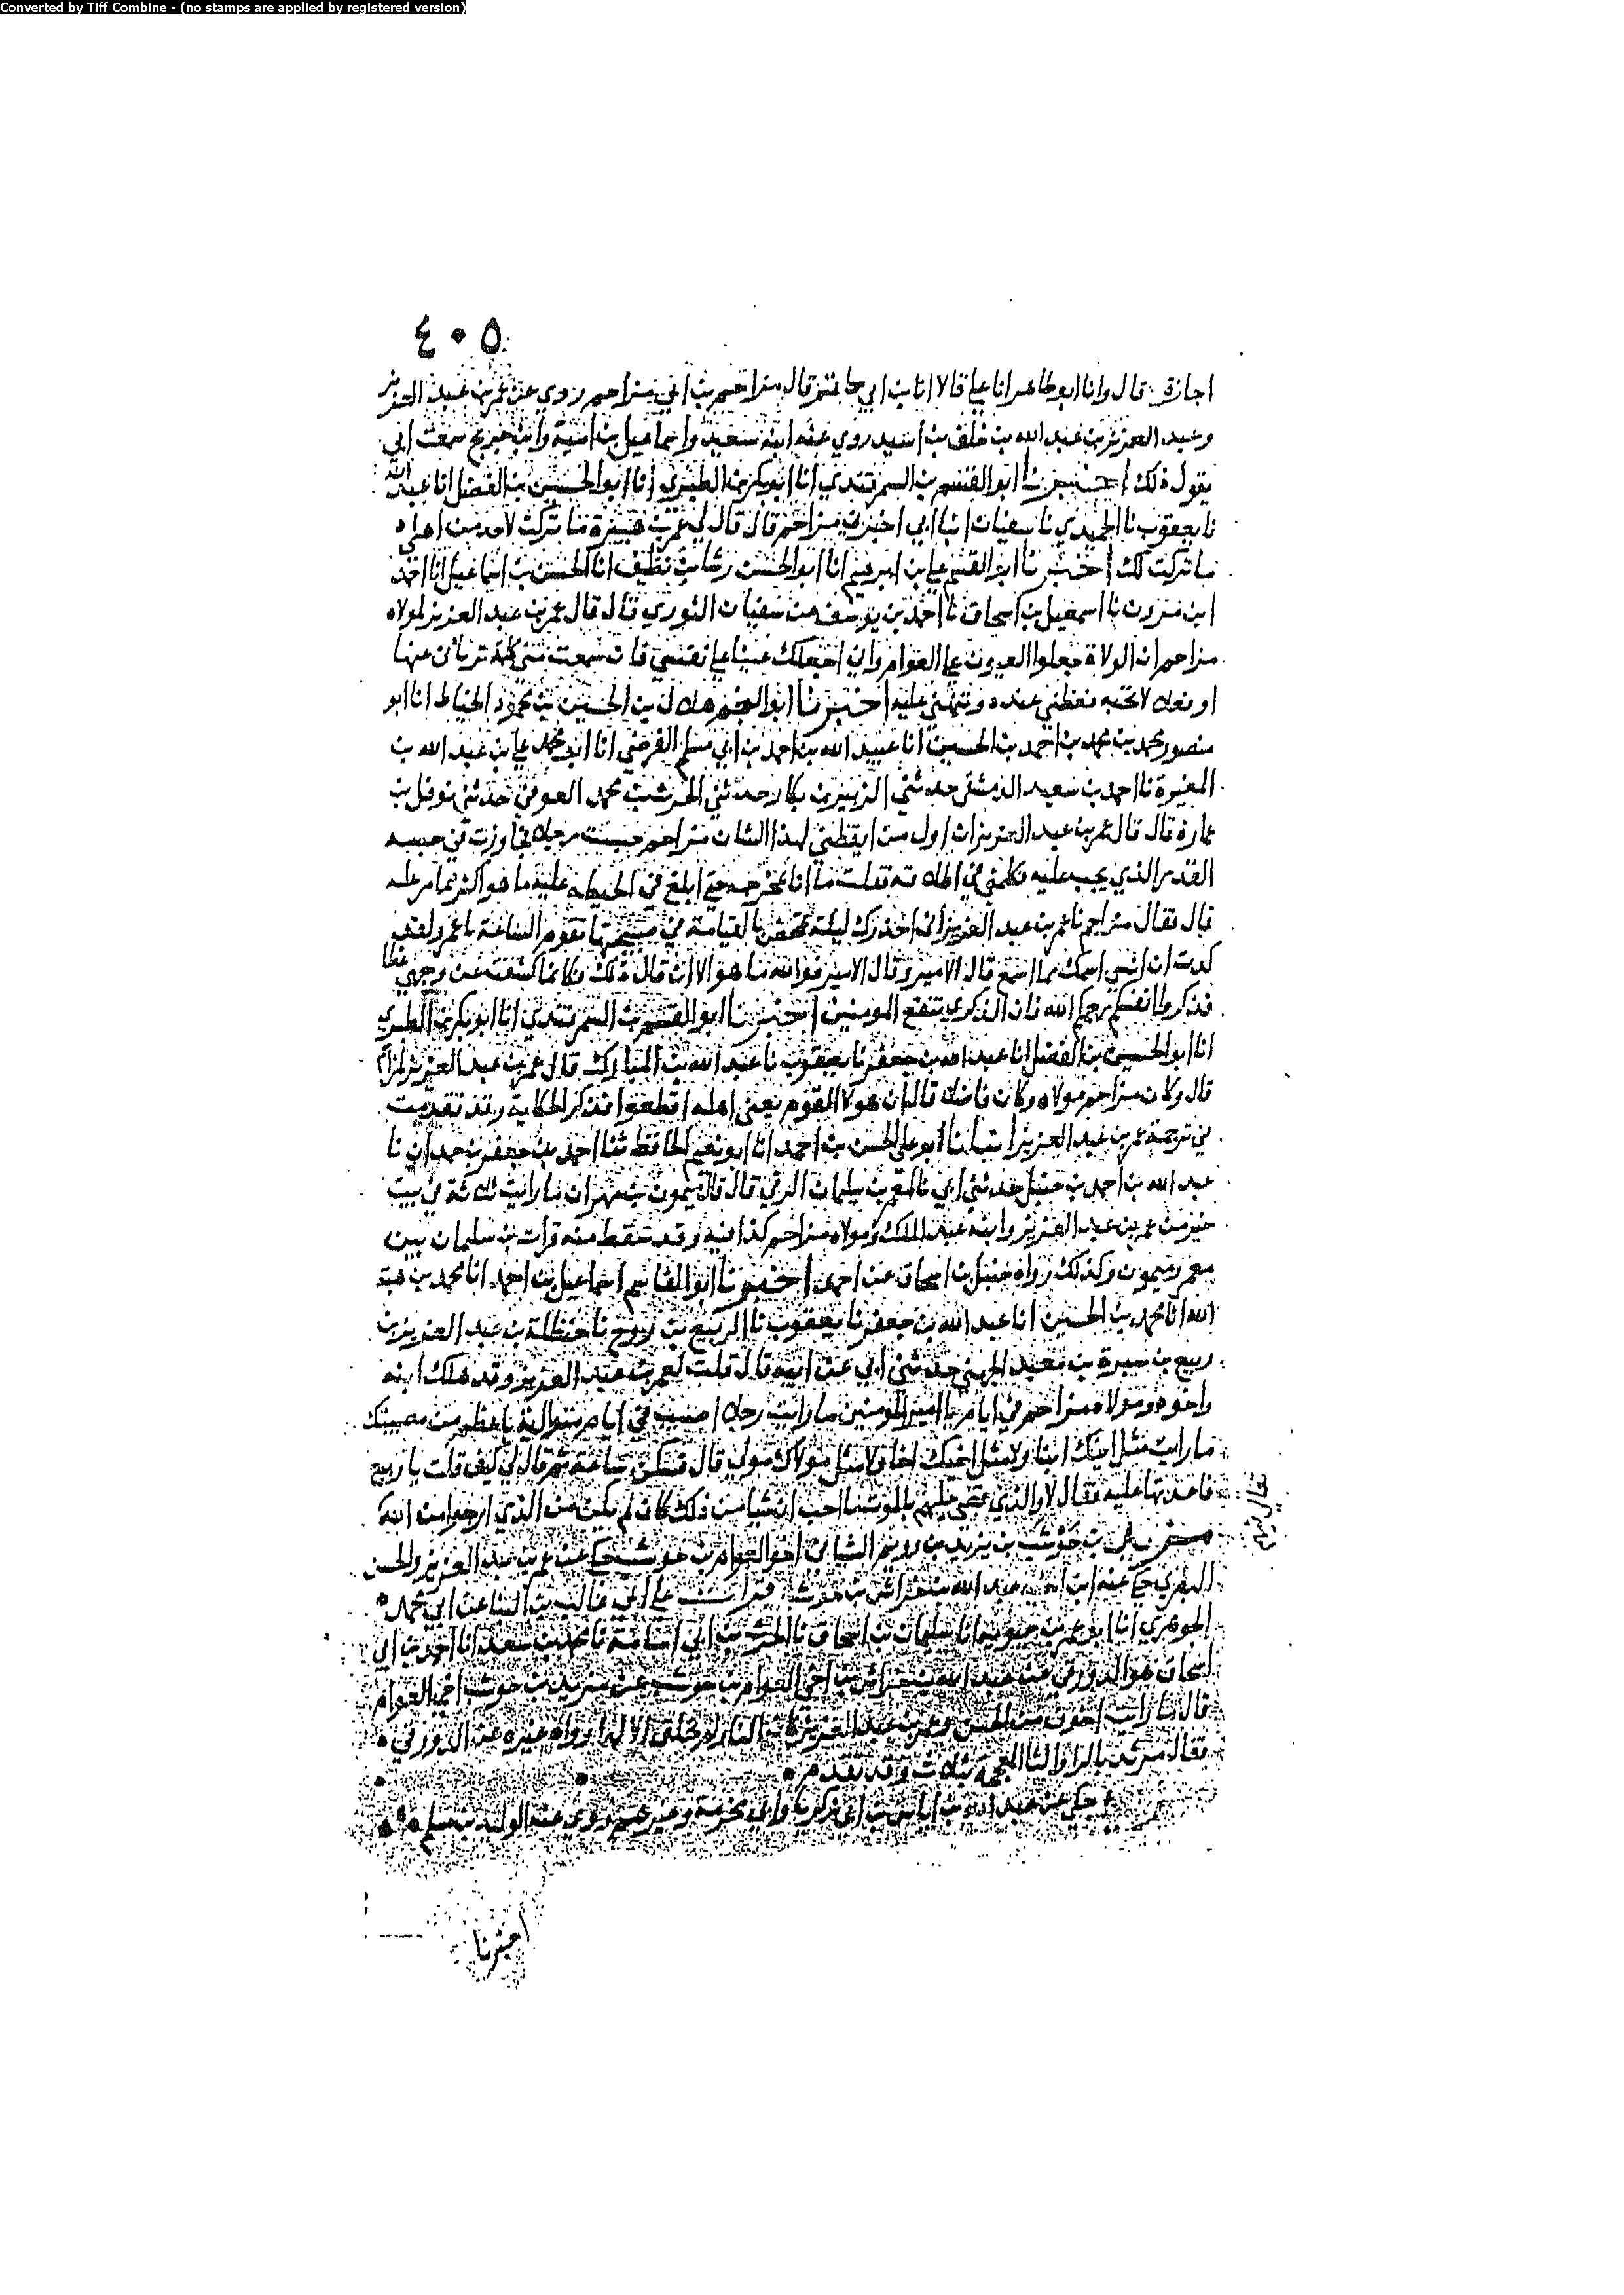 Converted by Tiff Combine - (no stamps are applied by registered version)
٤٠٥
اجازة قال وانا ابو طاهر انا علي قالا انا بن ابي حاتم قال مزاحم بن ابي مزاحم روى عن عمر بن عبد العزيز
وعبد العزيز بن عبد الله بن خلف بن اسيد روى عنه ابنه سعيد واسماعيل بن امية وابن جريج سمعت ابي
يقول ذلك اخبرنا ابو القسم بن السمرقندي انا ابو بكر بن الطبري انا ابو الحسين بن الفضل انا عبد الله
نا يعقوب نا الحميدي نا سفيان قال قال لي عمر بن ما تركت لاحد من اهله
ما تركت لك اخبرنا ابو القسم علي بن ابرهيم انا ابو الحسن رشا بن نظيف انا الحسن بن اسماعيل انا احمد
ابن مروان نا اسمعيل بن اسحاق نا احمد بن يوسف عن سفيان الثوري قال قال عمر بن عبد العزيز لمولاه
مزاحم ان الولاة جعلوا العيون على العوام واني اجعلك عينا على نفسي فان سمعت مني كلمة تربا بي عنها
او فعلا لا تحبه فعظني عنده ونبهني عليه اخبرنا ابو النجم هلال بن الحسين بن محمود الخياط انا ابو
منصور محمد بن محمد بن احمد بن الحسين انا عبيد الله بن احمد بن ابي مسلم الفرضي انا ابو محمد علي بن عبد الله بن
المغيرة نا احمد بن سعيد الدمشقي حدثني الزبير بن بكار حدثني الحرث بن محمد العوفي حدثني نوفل بن
عمارة قال قال عمر بن عبد العزيز ان اول من ايقظني لهذا الشان مزاحم حبست رجلا فجاوزت في حبسه
القدر الذي يجب عليه فكلمني في اطلاقه فقلت ما انا بمخرجه حتى ابلغ في الحيطة عليه ما هو اكثر مما مر عليه
قال فقال مزاحم يا عمر بن عبد العزيز اني احذرك ليلة تمخض بالقيامة في صبيحتها تقوم الساعة يا عمر ولقد
كدت ان انسى اسمك مما اسمع قال الامير وقال الامير فوالله ما هو الا ان قال ذلك فكانما كشفت عن وجهي غطا
فذكروا انفسكم رحمكم الله فان الذكرى تنفع المومنين اخبرنا ابو القسم بن السمرقندي انا ابو بكر بن الطبري
انا ابو الحسين بن الفضل انا عبد الله بن جعفر نا يعقوب نا عبد الله بن المبارك قال عمر بن عبد العزيز لمزاحم
قال وكان مزاحم مولاه وكان فاضلا قال ان هولا القوم يعني اهله اقطعوا فذكر الحكاية وقد تقدمت
في ترجمة عمر بن عبد العزيز انبانا ابو علي الحسن بن احمد انا ابو نعيم الحافظ ثنا احمد بن جعفر بن حمدان نا
عبد الله بن احمد بن حنبل حدثني ابي نا معمر بن سليمان الرقي قال قال ميمون بن مهران ما رايت ثلاثة في بيت
خير من عمر بن عبد العزيز وابنه عبد الملك ومولاه مزاحم كذا فيه وقد سقط منه فرات بن سلمان بين
معمر وميمون وكذلك رواه حنبل بن اسحاق عن احمد اخبرنا ابو القاسم اسماعيل بن احمد انا محمد بن هبة
الله انا محمد بن الحسين انا عبد الله بن جعفر نا يعقوب نا الربيع بن روح نا حنظلة بن عبد العزيز بن
ربيع بن سبرة بن معبد الجهني حدثني ابي عن ابيه قال قلت لعمر بن عبد العزيز وقد هلك ابنه
واخوه ومولاه مزاحم في ايام يا امير المومنين ما رايت رجلا اصيب في ايام متوالية باعظم من مصيبتك
ما رايت مثل ابنك ابنا ولا مثل اخيك اخا ولا مثل مولاك مولى قال فسكن ساعة ثم قال لي كيف قلت يا ربيع
فاعدتها عليه فقال لا والذي قضى عليهم بالموت ما احب ان شيا من ذلك كان لم يكن من الذي ارجوا من الله
بن حوشب بن يزيد بن رويم الشيباني اخو العوام بن حوشب حكى عن عمر بن عبد العزيز والحسن
البصري حكى عنه ابن اخيه عبد الله بن خراش بن حوشب قرات على ابي غالب بن البنا عن ابي محمد
الجوهري انا ابو عمر بن حيويه انا سليمان بن اسحاق نا الحرث بن ابي اسامة نا محمد بن سعد انا احمد بن ابي
اسحاق هو الدورقي عن عبد الله بن خراش بن اخي العوام بن حوشب عن مزيد بن حوشب اخي العوام
قال ما رايت اخوف من الحسن وعمر بن عبد العزيز كان النار لم تخلق الا لهما رواه غيره عن الدورقي
فقال مرثد بالرا والثا المعجمة بثلاث وقد تقدم
حكى عن عبد الله بن ابي زكريا وابي مخرمة وغيرهم روى عنه الوليد بن مسلم
اخبرنا